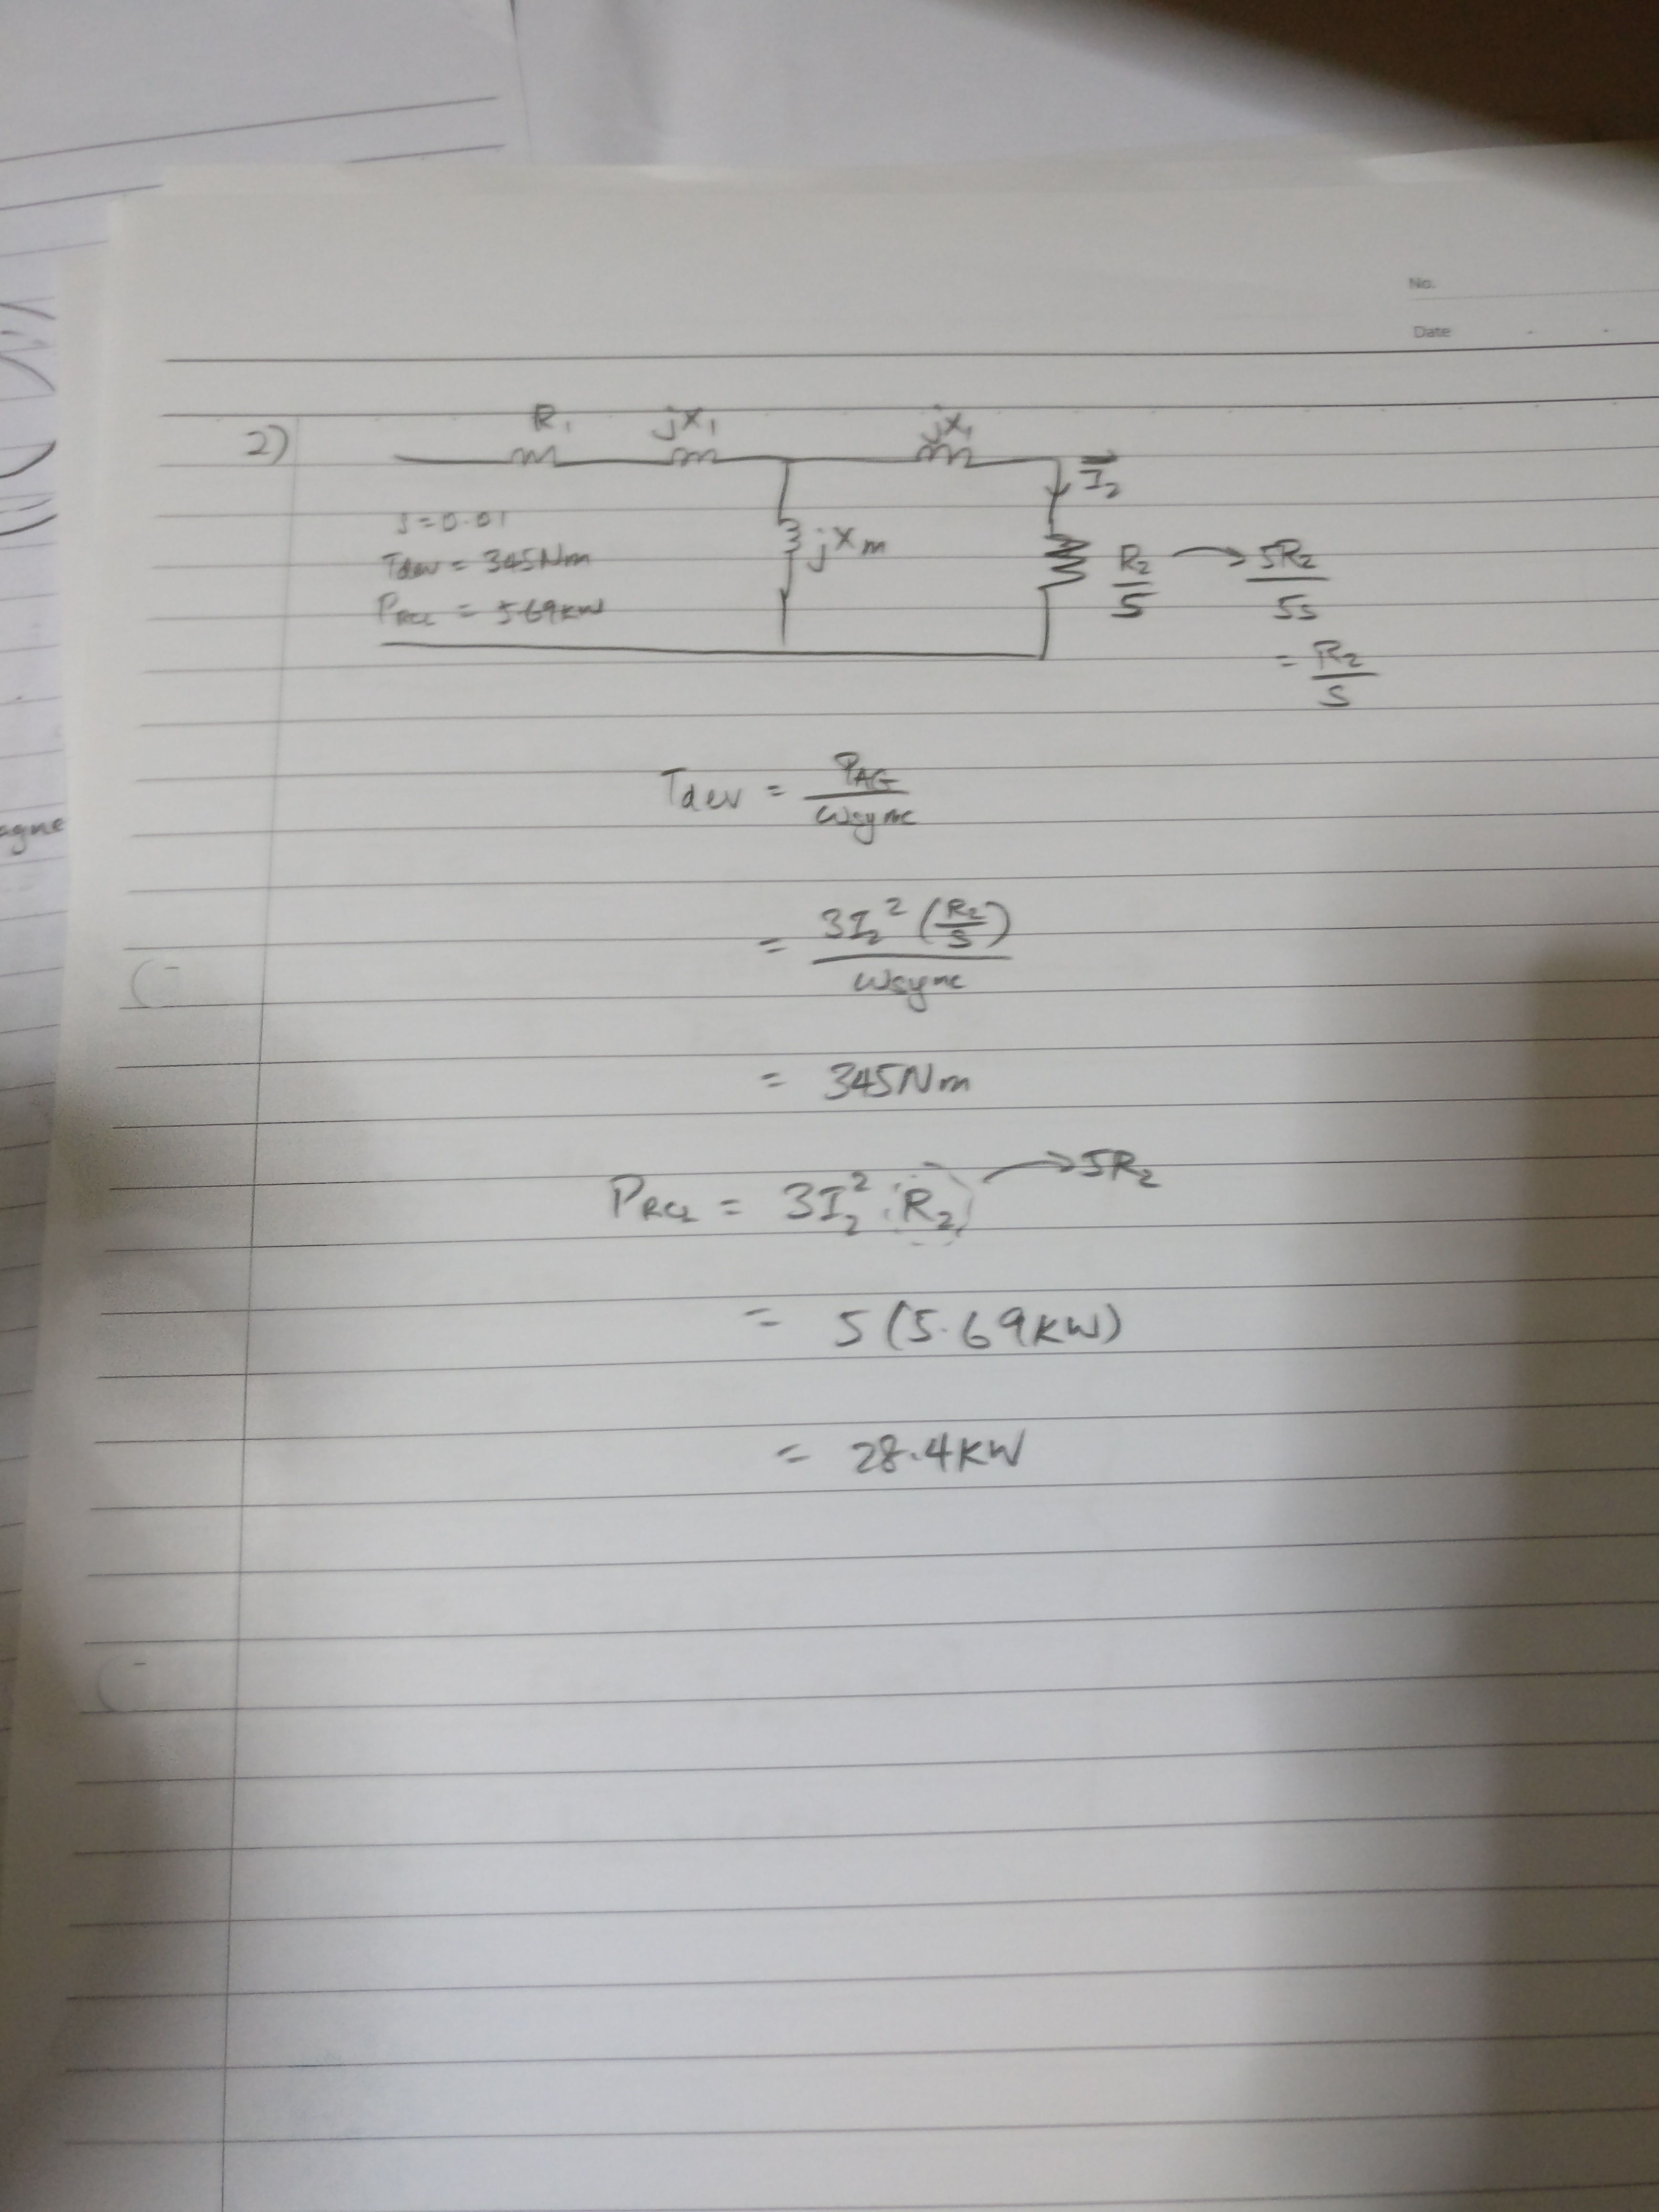 No.
Date
2)
R₁ jX₁ jX₁
I₂
s=0.01
jXm
Tdev = 345Nm
R₂/s → 5R₂/5s
PRCL = 5.69kW
= R₂/s
Tdev = PAG/ωsync
= 3I₂²(R₂/s)/ωsync
= 345Nm
PRCL = 3I₂² (R₂) → 5R₂
= 5(5.69kW)
= 28.4kW
agne